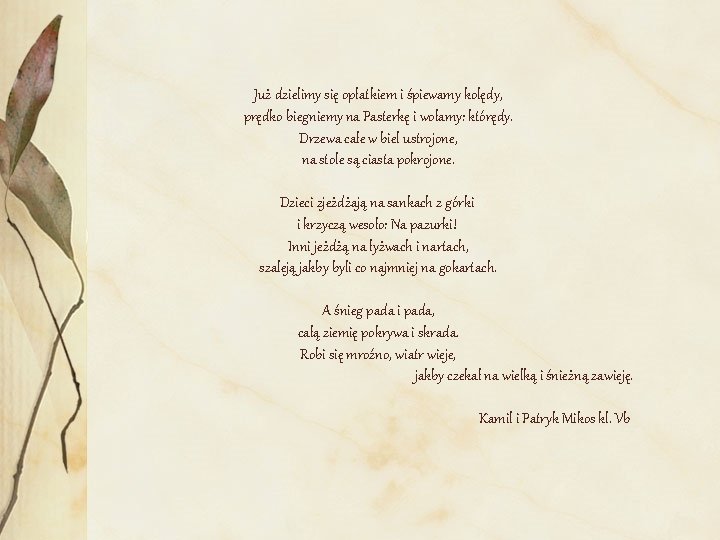 Już dzielimy się opłatkiem i śpiewamy kolędy,
prędko biegniemy na Pasterkę i wołamy: którędy.
Drzewa całe w biel ustrojone,
na stole są ciasta pokrojone.

Dzieci zjeżdżają na sankach z górki
i krzyczą wesoło: Na pazurki!
Inni jeżdżą na łyżwach i nartach,
szaleją jakby byli co najmniej na gokartach.

A śnieg pada i pada,
całą ziemię pokrywa i skrada.
Robi się mroźno, wiatr wieje,
jakby czekał na wielką i śnieżną zawieję.

Kamil i Patryk Mikos kl. Vb